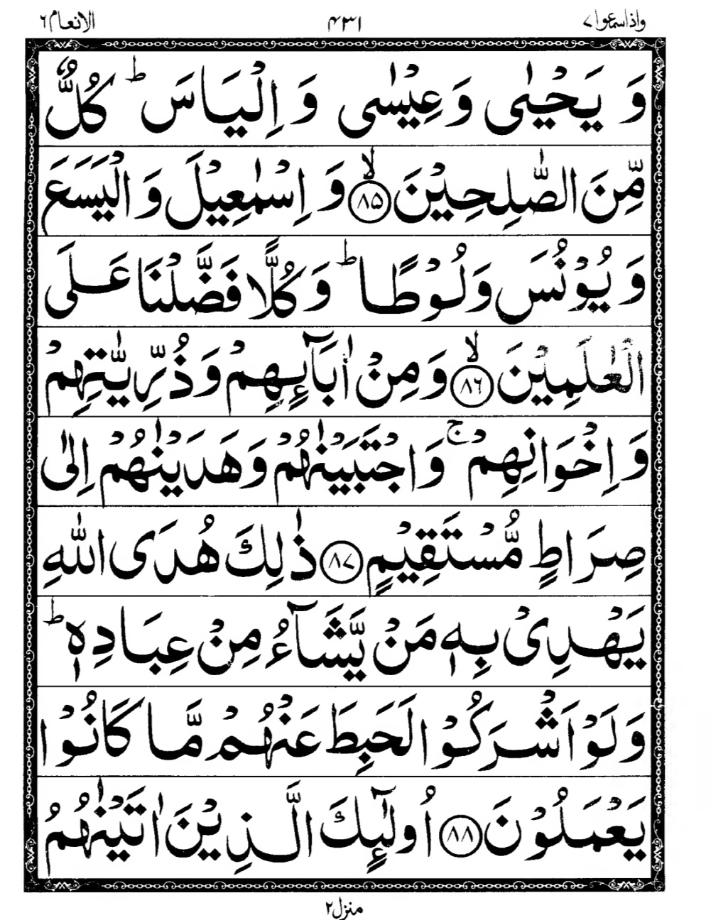 واذاسمعوا ۷ ۴۳۱ الانعام ۶
وَ يَحْيٰى وَعِيْسٰى وَ اِلْيَاسَ ؕ كُلٌّ
مِّنَ الصّٰلِحِيْنَ ۙ‏﴿۸۵﴾ وَ اِسْمٰعِيْلَ وَ الْيَسَعَ
وَ يُوْنُسَ وَلُوْطًا ؕ وَكُلًّا فَضَّلْنَا عَلَى
الْعٰلَمِيْنَ ۙ‏﴿۸۶﴾ وَمِنْ اٰبَآئِهِمْ وَذُرِّيّٰتِهِمْ
وَاِخْوَانِهِمْ ۚ وَاجْتَبَيْنٰهُمْ وَهَدَيْنٰهُمْ اِلٰى
صِرَاطٍ مُّسْتَقِيْمٍ ﴿۸۷﴾ ذٰلِكَ هُدَى اللّٰهِ
يَهْدِىْ بِهٖ مَنْ يَّشَآءُ مِنْ عِبَادِهٖ ؕ
وَلَوْ اَشْرَكُوْا لَحَبِطَ عَنْهُمْ مَّا كَانُوْا
يَعْمَلُوْنَ ﴿۸۸﴾ اُولٰٓئِكَ الَّذِيْنَ اٰتَيْنٰهُمُ
منزل ۲